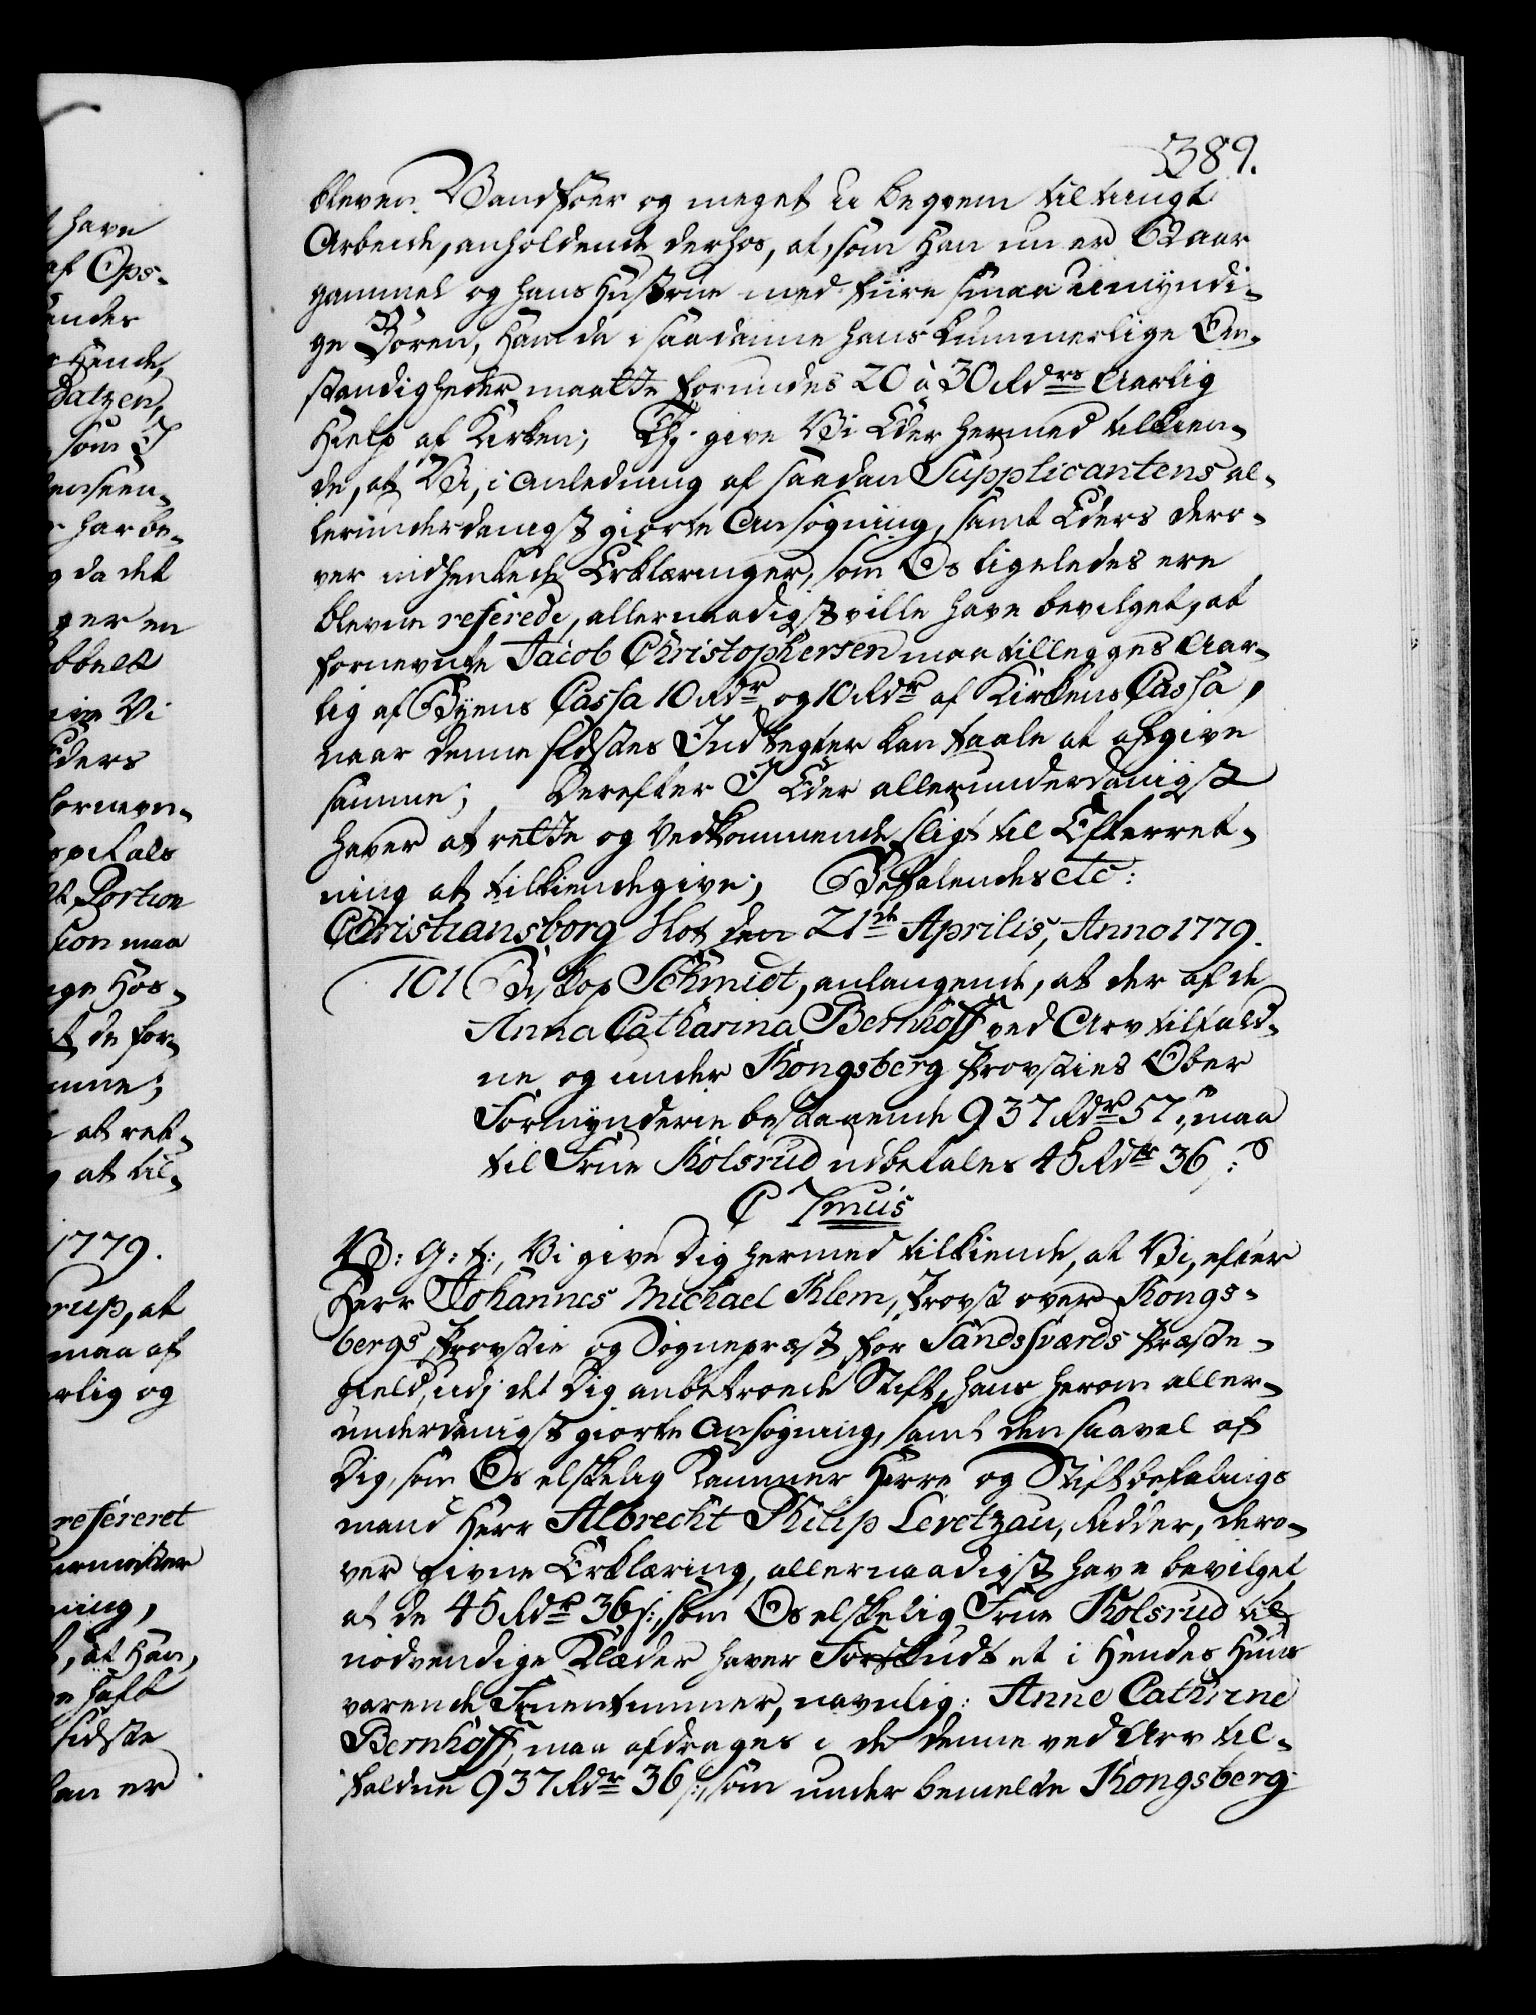 389.
bleven Vandføer og meget u beqvem til tungt
Arbeide, anholdende derhos, at, som Han nu er 62 aar
gammel og hans Hustrue med fiire smaa umyndi-
ge Børen, Han da i saadanne hans kummerlige Om-
stændigheder maatte forundes 20 à 30 Rdrs Aarlig
Hielp af Kirken; Thj give Vi Eder hermed tilkien-
de, at Vi, i Anledning af saadan Supplicantens al-
lerunderdanigst giorte Ansøgning, samt Eders dero-
ver indhentede Erklæringer, som Os ligeledes ere
blevne referede, allernaadigst ville have bevilget, at
fornevnte Jacob Christophersen maa tillegges Aar-
lig af Byens Cassa 10 Rdr og 10 Rdr af Kirkens Cassa,
naar denne sidstes Indtegter kan taale at afgive
samme; Derefter I Eder allerunderdanigst
haver at rette og Vedkommende sligt til Efterret-
ning at tilkiendegive; Befalendes etc:
Christiansborg Slot den 21de Aprilis, Anno 1779.
101 Biskop Schmidt, anlangende, at der af de
Anna Catharina Bernhoff ved Arv tilfald-
ne og under Kongsberg Provsties Ober
Formynderie bestaaende 937 Rdr 57 s, maa
til Frue Kolsrud udbetales 45 Rdr 36 s:
C 7mus
V: G: t:, Vi give Dig hermed tilkiende, at Vi, efter
Herr Johannes Michael Klem, Provst over Kongs-
bergs Provstie og Sognepræst for Sandsværds Præste-
gield, udj det Dig anbetroede Stift, hans herom aller-
underdanigst giorte Ansøgning, samt den saavel af
Dig, som Os elskelig Kammer Herre og Stiftbefalings
mand Herr Albrecht Philip Levetzau, Ridder, dero-
ver givne Erklæring, allernaadigst have bevilget
at de 45 Rdr 36 s:, som Os elskelig Frue Kolsrud til
nødvendige Klæder haver Forskudt et i Hendes Huus
værende Fruentimmer, navnlig: Anne Cathrine
Bernhoff, maa afdrages i de denne ved Arv til-
faldne 937 Rdr 36 s:, som under bemelte Kongsberg